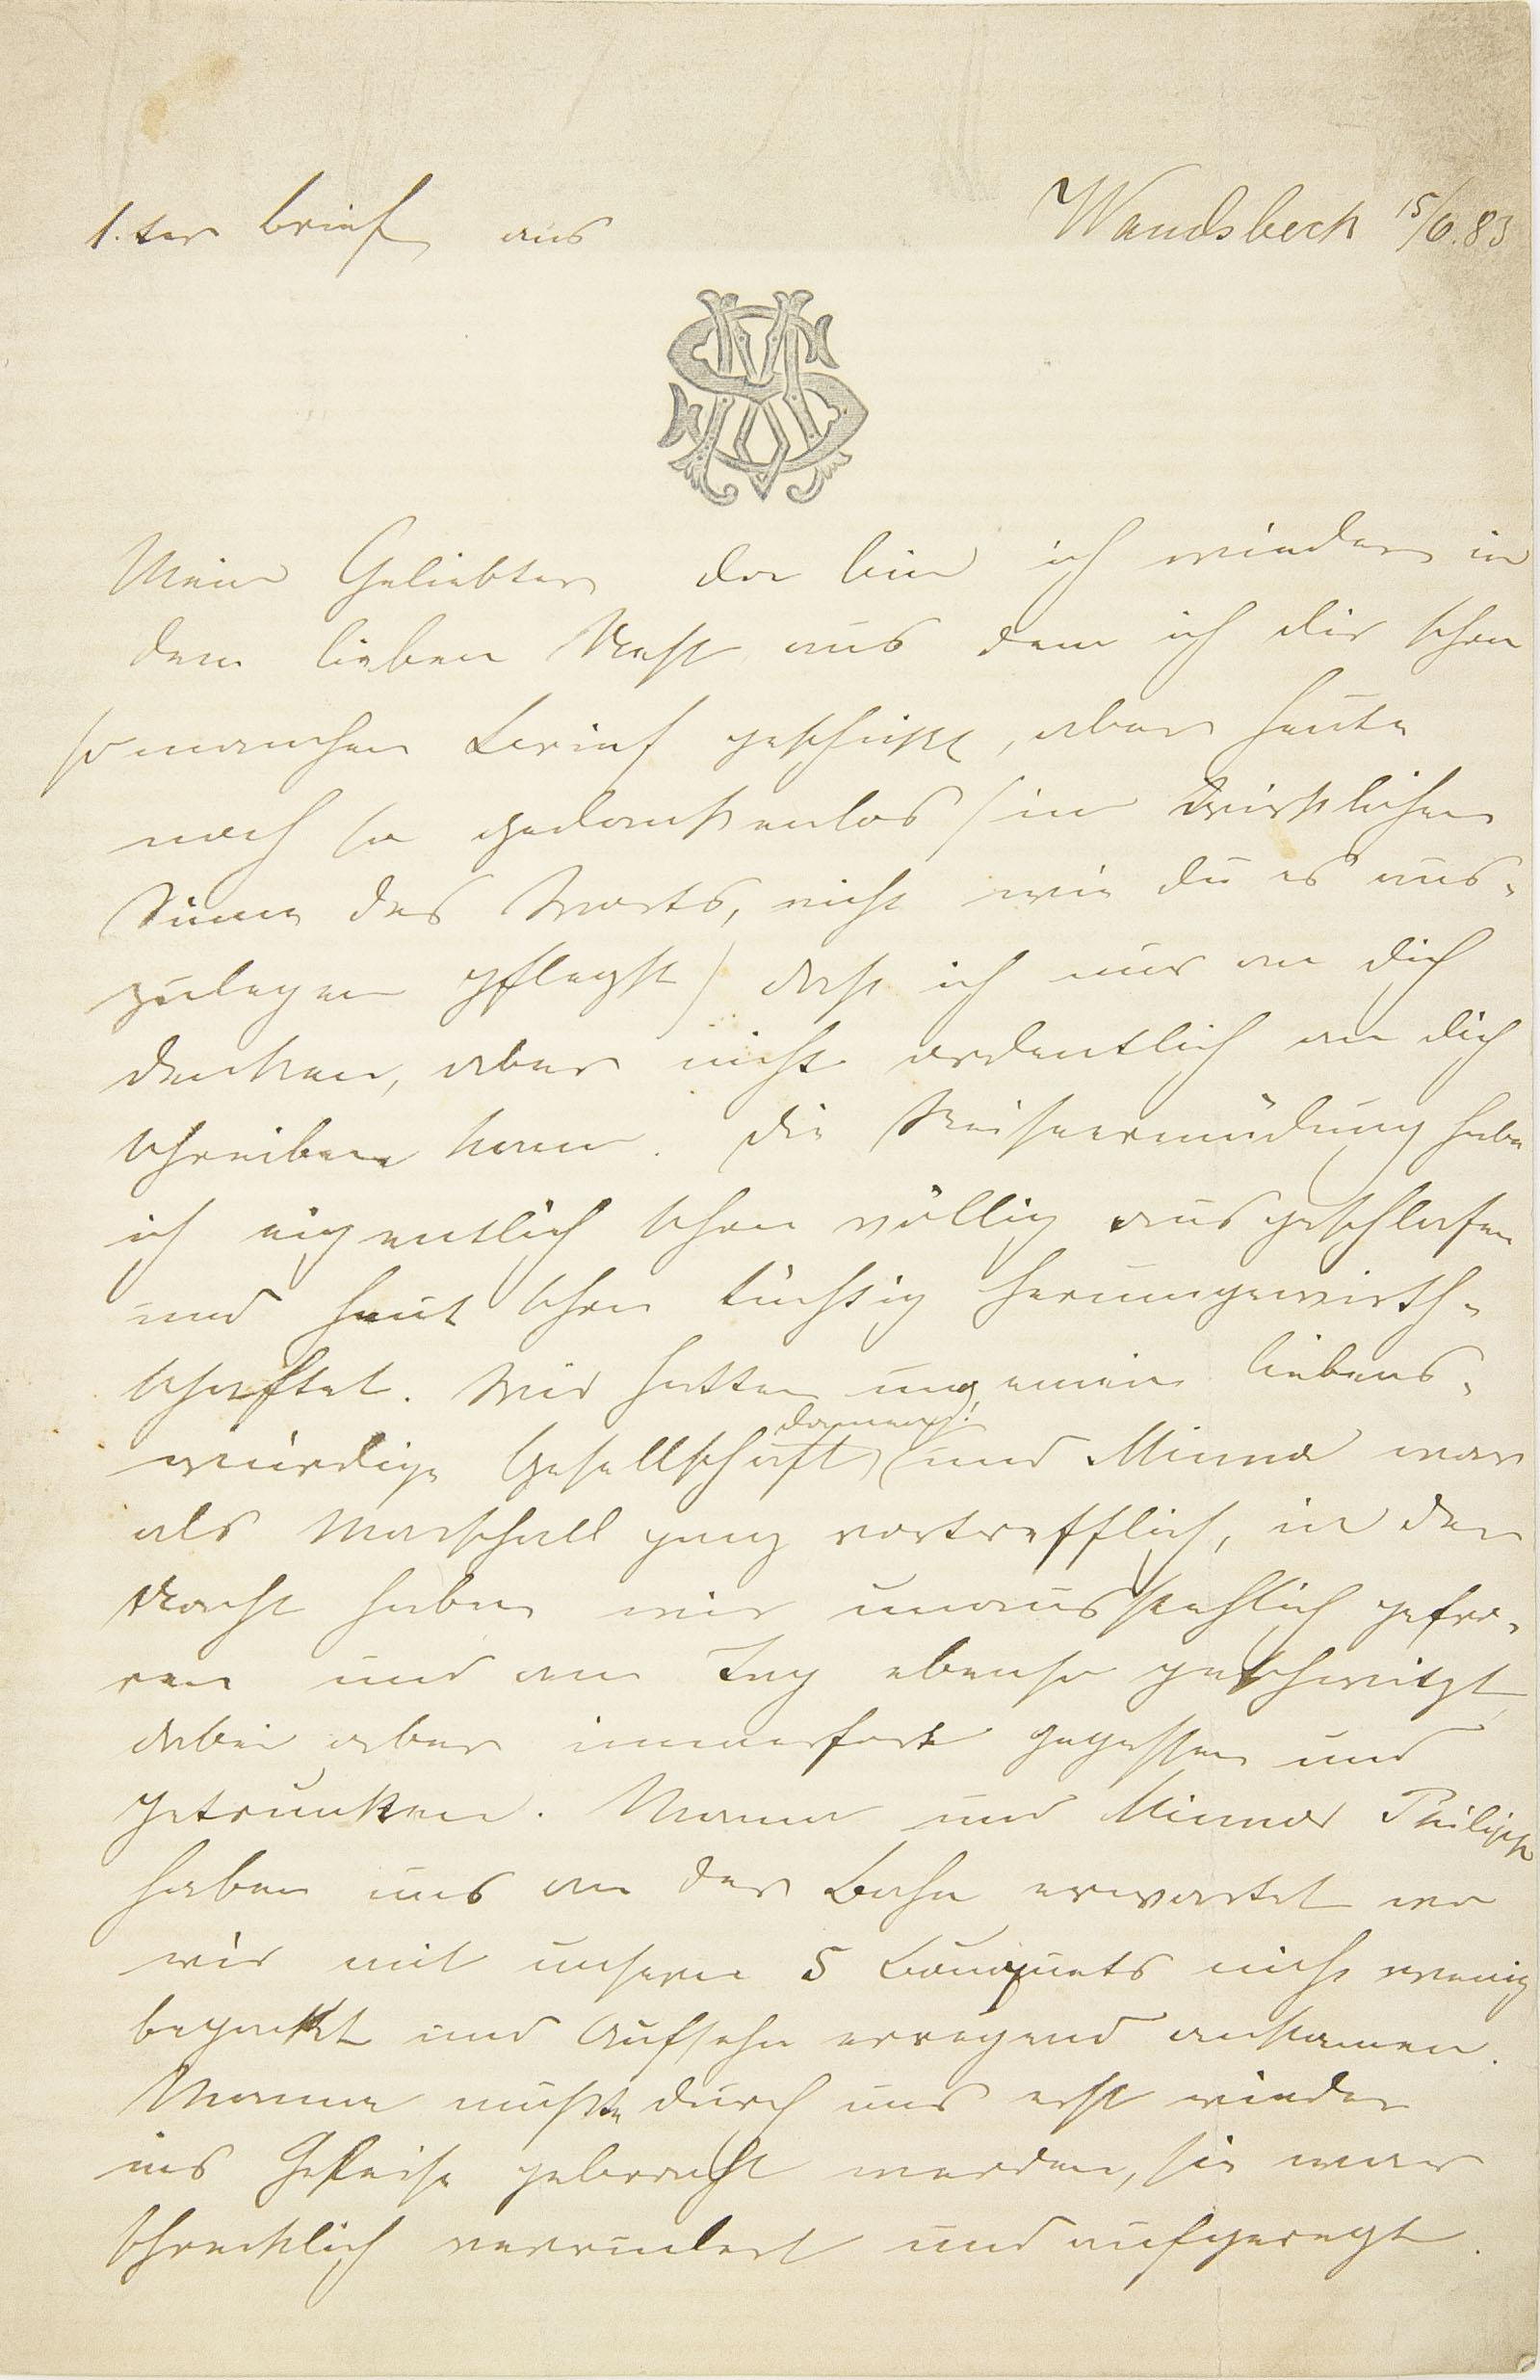 1.ter Brief aus Wandsbeck 15/6.83
MS
Mein Geliebter da bin ich wieder in
dem lieben Nest aus dem ich dir schon
so manchen Brief geschickt, aber heute
noch so gedankenlos (im wirklichen
Sinne des Worts, nicht wie du es aus-
zulegen pflegst) daß ich nur an dich
denken, aber nicht ordentlich an dich
schreiben kann. Die Reiseermüdung habe
ich eigentlich schon völlig ausgeschlafen
und heut schon tüchtig herumgewirth-
schaftet. Wir hatten ungemein liebens-
damen!
würdige Gesellschaft (und Minna war
als Marschall ganz vortrefflich, in der
Nacht haben wir unausstehlich gefro-
ren und am Tag ebenso geschwitzt
dabei aber immerfort gegessen und
getrunken. Mama und Minna Philipp
haben uns an der Bahn erwartet wo
wir mit unseren 5 Bouquets nicht wenig
bepackt und Aufsehn erregend ankamen.
Mama mußte durch uns erst wieder
ins Geleise gebracht werden, sie war
schrecklich und aufgeregt.